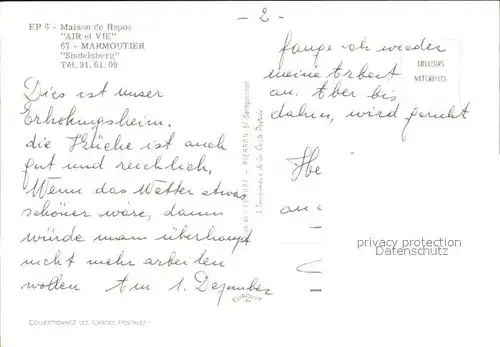 EP 6 - Maison de Repos
"AIR et VIE"
67 - MARMOUTIER
"Sindelsberg"
Tél. 31.61.09
- 2 -
Dies ist unser
Erholungsheim.
die Küche ist auch
gut und reichlich,
Wenn das Wetter etwas
schöner wäre, dann
würde man überhaupt
nicht mehr arbeiten
wollen Am 1. Dezember
fange ich wieder
meine Arbeit
an. Aber bis
dahin, wird geruht
COULEURS
NATURELLES
PIERRON
Sarreguemines
de la Carte Postale
EUROLUX
privacy protection
Datenschutz
COLLECTIONNEZ LES CARTES POSTALES !